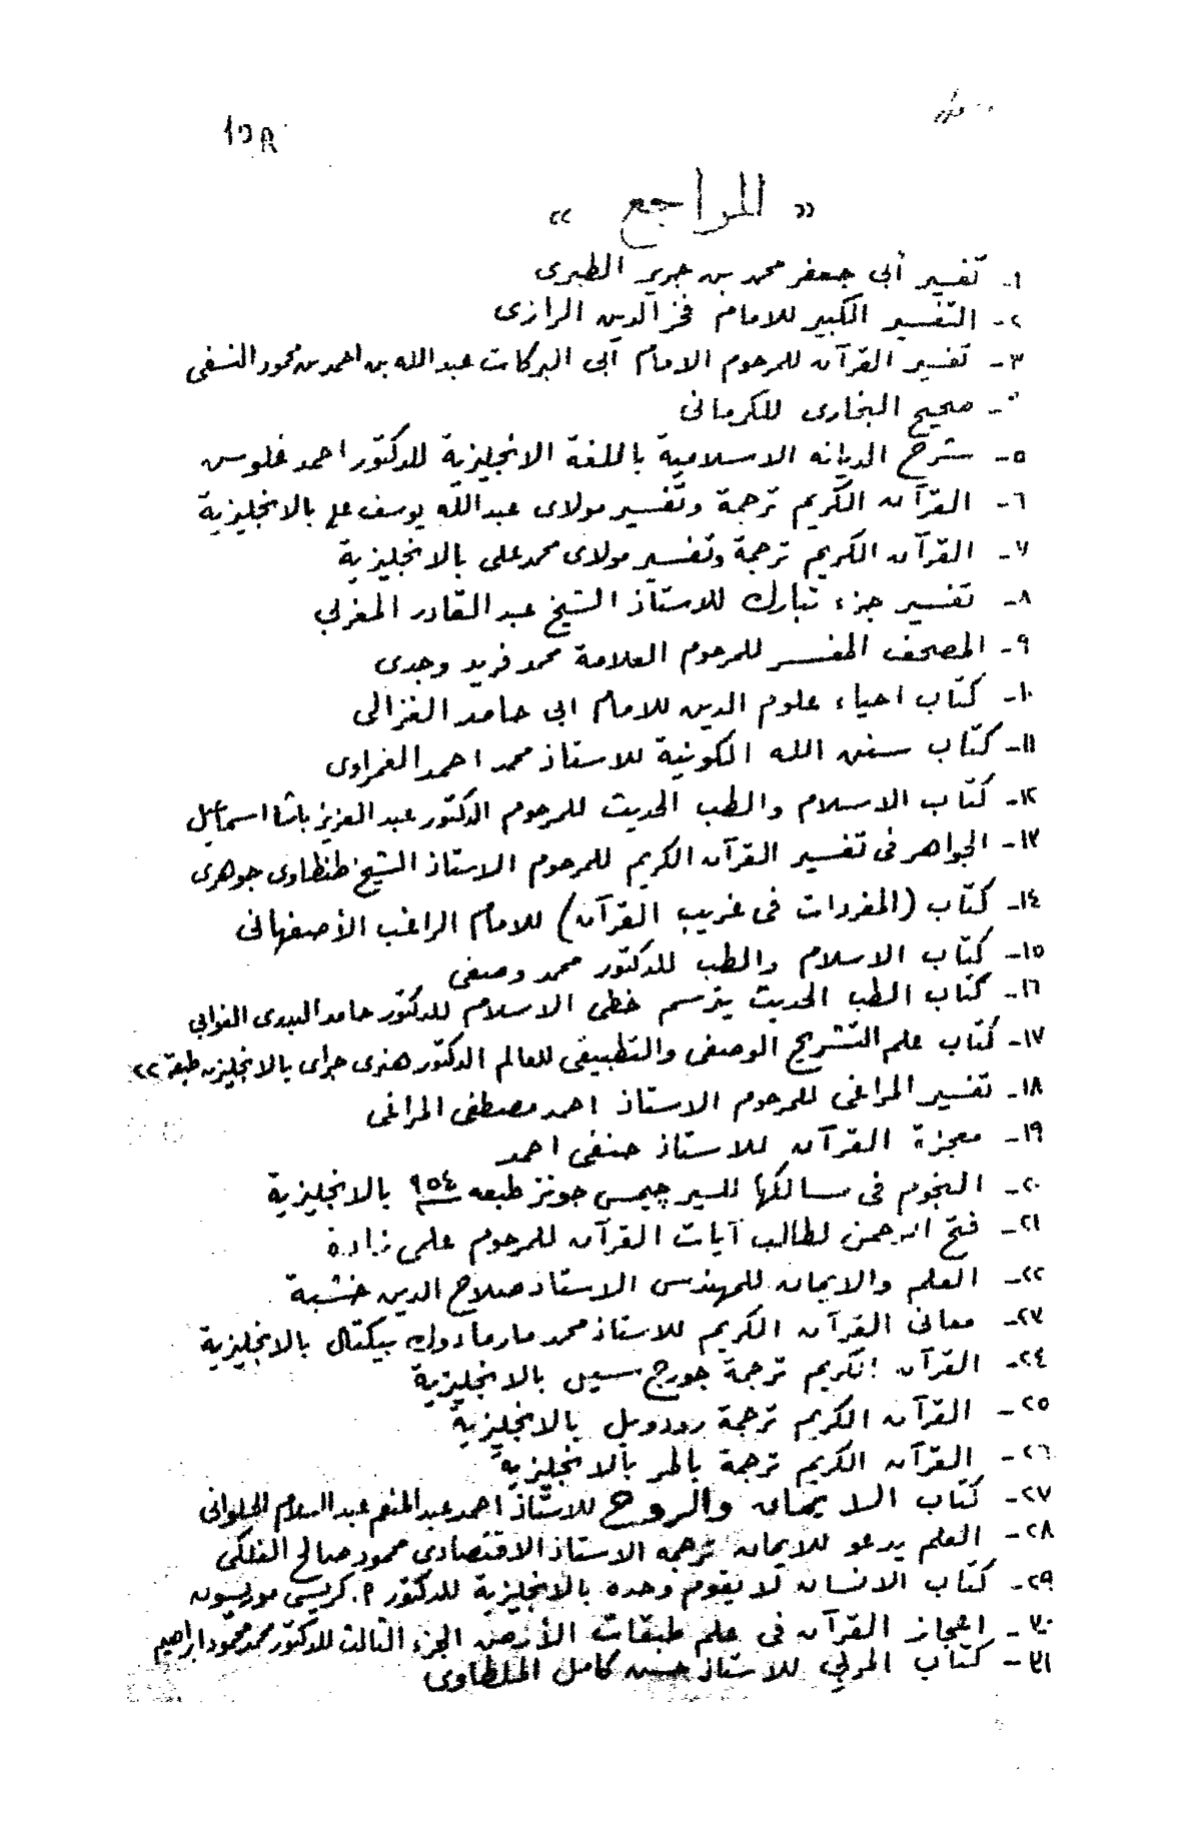 ١٥٨
« المراجع »
١- تفسير أبى جعفر محمد بن جرير الطبرى
٢- التفسير الكبير للامام فخر الدين الرازى
٣- تفسير القرآن للمرحوم الامام أبى البركات عبد الله بن احمد بن محمود النسفى
- صحيح البخارى للكرمانى
٥- شرح الديانه الاسلامية باللغة الانجليزية للدكتور احمد غلوس
٦- القرآن الكريم ترجمة وتفسير مولاى عبد الله يوسف على بالانجليزية
٧- القرآن الكريم ترجمة وتفسير مولاى محمد على بالانجليزية
٨- تفسير جزء تبارك للاستاذ الشيخ عبد القادر المغربى
٩- المصحف المفسر للمرحوم العلامة محمد فريد وجدى
١٠- كتاب احياء علوم الدين للامام ابى حامد الغزالى
١١- كتاب سنن الله الكونية للاستاذ محمد احمد الغمراوى
١٢- كتاب الاسلام والطب الحديث للمرحوم الدكتور عبد العزيز باشا اسماعيل
١٣- الجواهر فى تفسير القرآن الكريم للمرحوم الاستاذ الشيخ طنطاوى جوهرى
١٤- كتاب (المفردات فى غريب القرآن) للامام الراغب الأصفهانى
١٥- كتاب الاسلام والطب للدكتور محمد وصفى
١٦- كتاب الطب الحديث يترسم خطى الاسلام للدكتور حامد البدرى الغوابى
١٧- كتاب علم التشريح الوصفى والتطبيقى للعالم الدكتور هنرى جراى بالانجليزيه طبعة ٢٢
١٨- تفسير المراغى للمرحوم الاستاذ احمد مصطفى المراغى
١٩- معجزة القرآن للاستاذ حنفى احمد
٢٠- النجوم فى مسالكها للسير چيمس جونز طبعه ٩٥٤ بالانجليزية
٢١- فتح الرحمن لطالب آيات القرآن للمرحوم علمى زاده
٢٢- العلم والايمان للمهندس الاستاذ صلاح الدين خشبة
٢٣- معانى القرآن الكريم للاستاذ محمد مارمادوك بيكتال بالانجليزية
٢٤- القرآن الكريم ترجمة جورج سيل بالانجليزية
٢٥- القرآن الكريم ترجمة رودويل بالانجليزية
٢٦- القرآن الكريم ترجمة بالمر بالانجليزية
٢٧- كتاب الايمان والروح للاستاذ احمد عبد المنعم عبد السلام الحلوانى
٢٨- العلم يدعو للايمان ترجمه الاستاذ الاقتصادى محمود صالح الفلكى
٢٩- كتاب الانسان لا يقوم وحده بالانجليزية للدكتور ا. كريسى موريسون
٣٠- اعجاز القرآن فى علم طبقات الأرض الجزء الثالث للدكتور محمد محمود ابراهيم
٣١- كتاب المربى للاستاذ حسن كامل الملطاوى